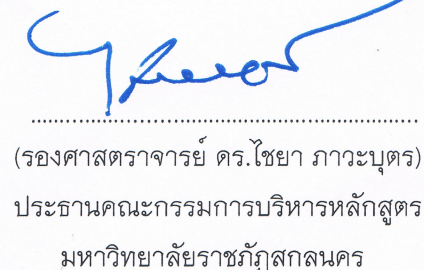 (รองศาสตราจารย์ ดร.ไชยา ภาวะบุตร)
ประธานคณะกรรมการบริหารหลักสูตร
มหาวิทยาลัยราชภัฏสกลนคร